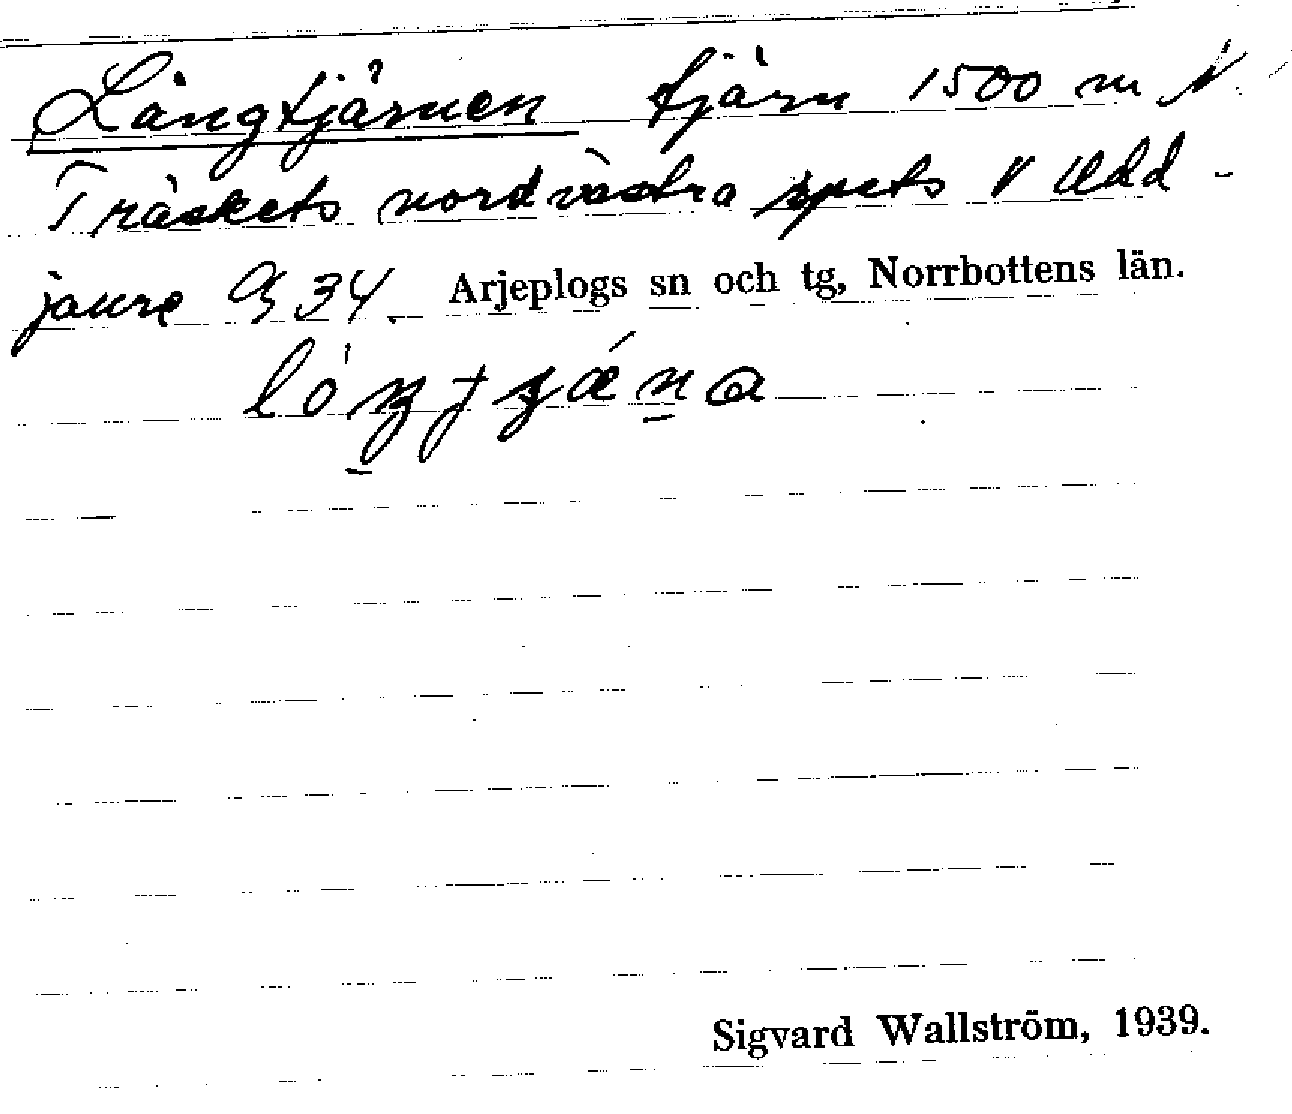 Långtjärnen tjärn 1500 m N.
Träskets nordvästra spets V Udd-
jaure G 34. Arjeplogs sn och tg, Norrbottens län.
Sigvard Wallström, 1939.